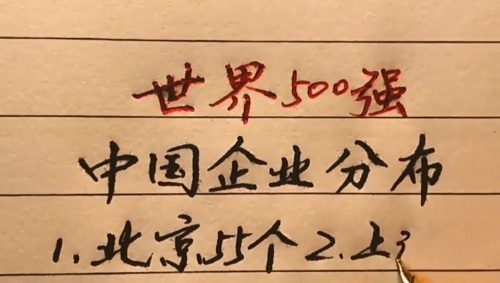 世界500强
中国企业分布
1.北京55个2.上